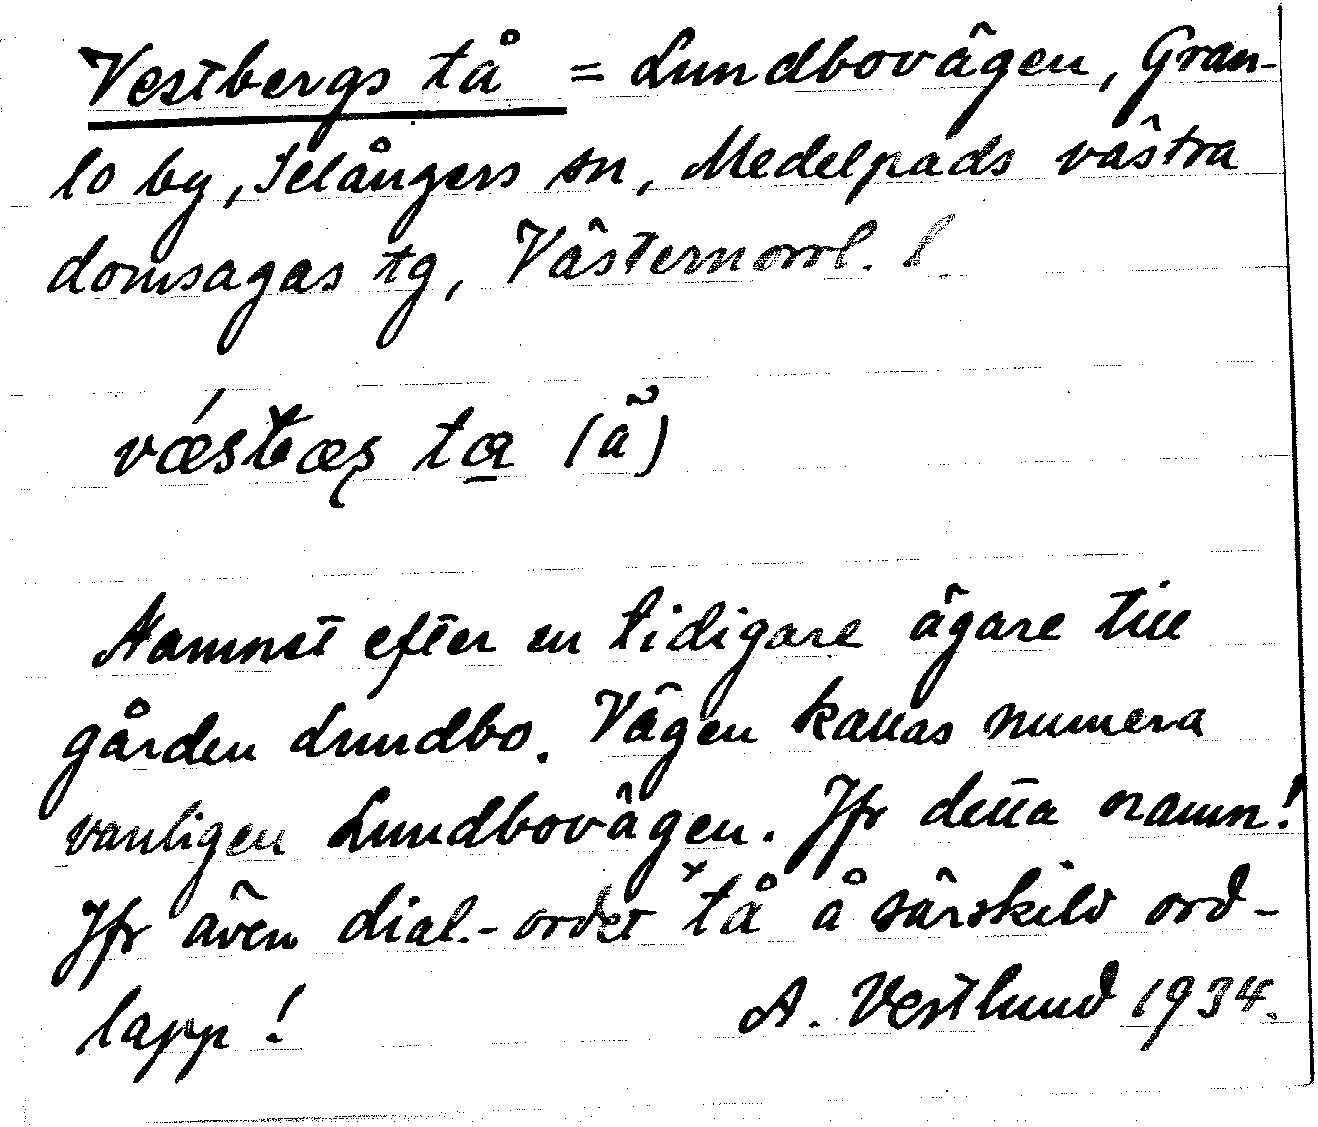 Vestbergs tå = Lundbovägen, Gran-
lo by, Selångers sn, Medelpads västra
domsagas tg, Västernorrl. l.
Namnet efter en tidigare ägare till
gården Lundbo. Vägen kallas numera
vanligen Lundbovägen. Jfr detta namn!
Jfr även dial.-ordet *tå å särskild ord-
lapp!
A. Vestlund 1934.